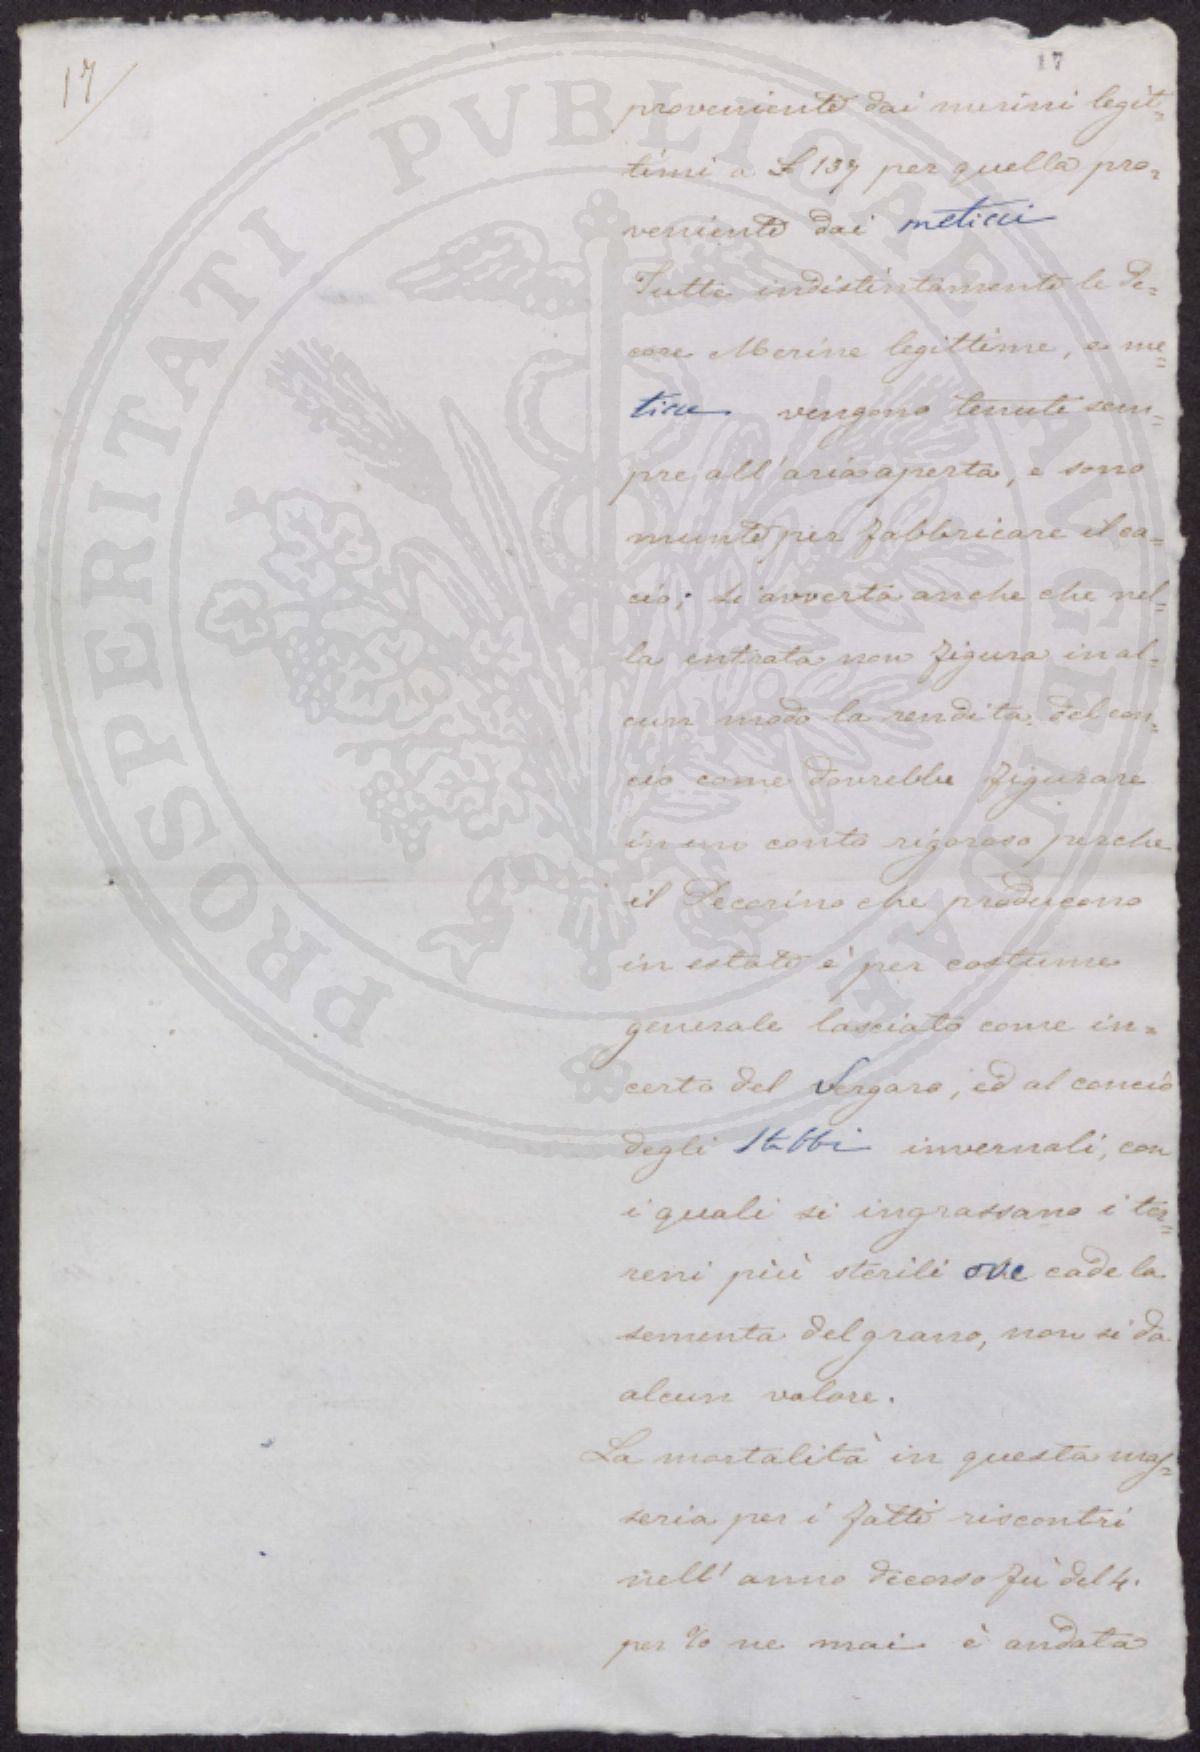 17
17
proveniente dai merini legit=
timi a £ 137 per quella pro=
veniente dai meticci
Tutte indistintamente le Pe=
core Merine legittime, e me=
ticce vengono tenute sem=
pre all'aria aperta, e sono
munte per fabbricare il ca=
cio; si avverta anche che nel=
la entrata non figura in al=
cun modo la rendita del con=
cio come dovrebbe figurare
in un conto rigoroso perche
il Pecorino che producono
in estate è per costume
generale lasciato come in=
certo del Vergaro, ed al concio
degli Stabbi invernali, con
i quali si ingrassano i ter=
reni più sterili ove cade la
sementa del grano, non si da
alcun valore.
La mortalità in questa mas=
seria per i fatti riscontri
nell'anno decorso fù del 4.
per % ne mai è andata
PROSPERITATI PVBLICAE AVGENDAE